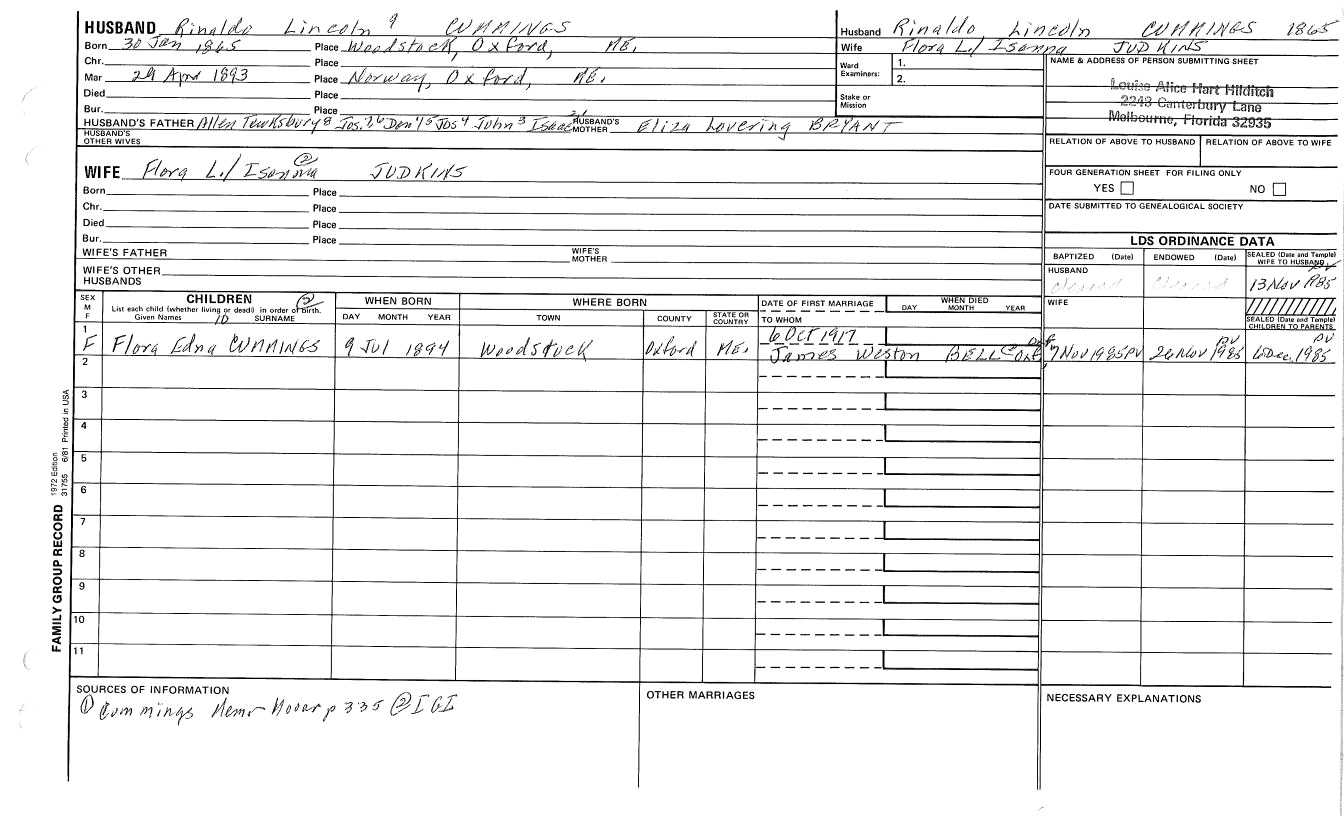 HUSBAND Rinaldo Lincoln 9 CUMMINGS
Born 30 Jan 1865 Place Woodstock, Oxford, ME.
Chr. Place
Mar 29 Apr 1893 Place Norway, Oxford, ME.
Died Place
Bur. Place
HUSBAND'S FATHER Allen Tewksbury 8 Jos. 7,6 Dan'l 5 Jos 4 John 3 Isaac HUSBAND'S MOTHER Eliza Lovering BRYANT
HUSBAND'S OTHER WIVES
Husband Rinaldo Lincoln CUMMINGS 1865
Wife Flora L./Isanna JUDKINS
Ward Examiners: 1.
2.
Stake or Mission
NAME & ADDRESS OF PERSON SUBMITTING SHEET
Louise Alice Hart Hilditch
2243 Canterbury Lane
Melbourne, Florida 32935
RELATION OF ABOVE TO HUSBAND RELATION OF ABOVE TO WIFE
FOUR GENERATION SHEET FOR FILING ONLY
YES NO
DATE SUBMITTED TO GENEALOGICAL SOCIETY
WIFE Flora L./Isanna 2 JUDKINS
Born Place
Chr. Place
Died Place
Bur. Place
WIFE'S FATHER WIFE'S MOTHER
WIFE'S OTHER HUSBANDS
LDS ORDINANCE DATA
BAPTIZED (Date) ENDOWED (Date) SEALED (Date and Temple) WIFE TO HUSBAND
HUSBAND cleared cleared 13 Nov 1985 PV
WIFE
SEALED (Date and Temple) CHILDREN TO PARENTS
SEX M F
CHILDREN 2
List each child (whether living or dead) in order of birth.
Given Names 10 SURNAME
WHEN BORN
DAY MONTH YEAR
WHERE BORN
TOWN COUNTY STATE OR COUNTRY
DATE OF FIRST MARRIAGE
TO WHOM
WHEN DIED
DAY MONTH YEAR
1 F Flora Edna CUMMINGS 9 Jul 1894 Woodstock Oxford ME. 6 Oct 1917
James Weston BELL 7 Nov 1985 PV 26 Nov 1985 PV 6 Dec 1985 PV
2
3
4
5
6
7
8
9
10
11
FAMILY GROUP RECORD 1972 Edition
31755 6/81 Printed in USA
SOURCES OF INFORMATION
① Cummings Memr p 335 ② IGI
OTHER MARRIAGES
NECESSARY EXPLANATIONS